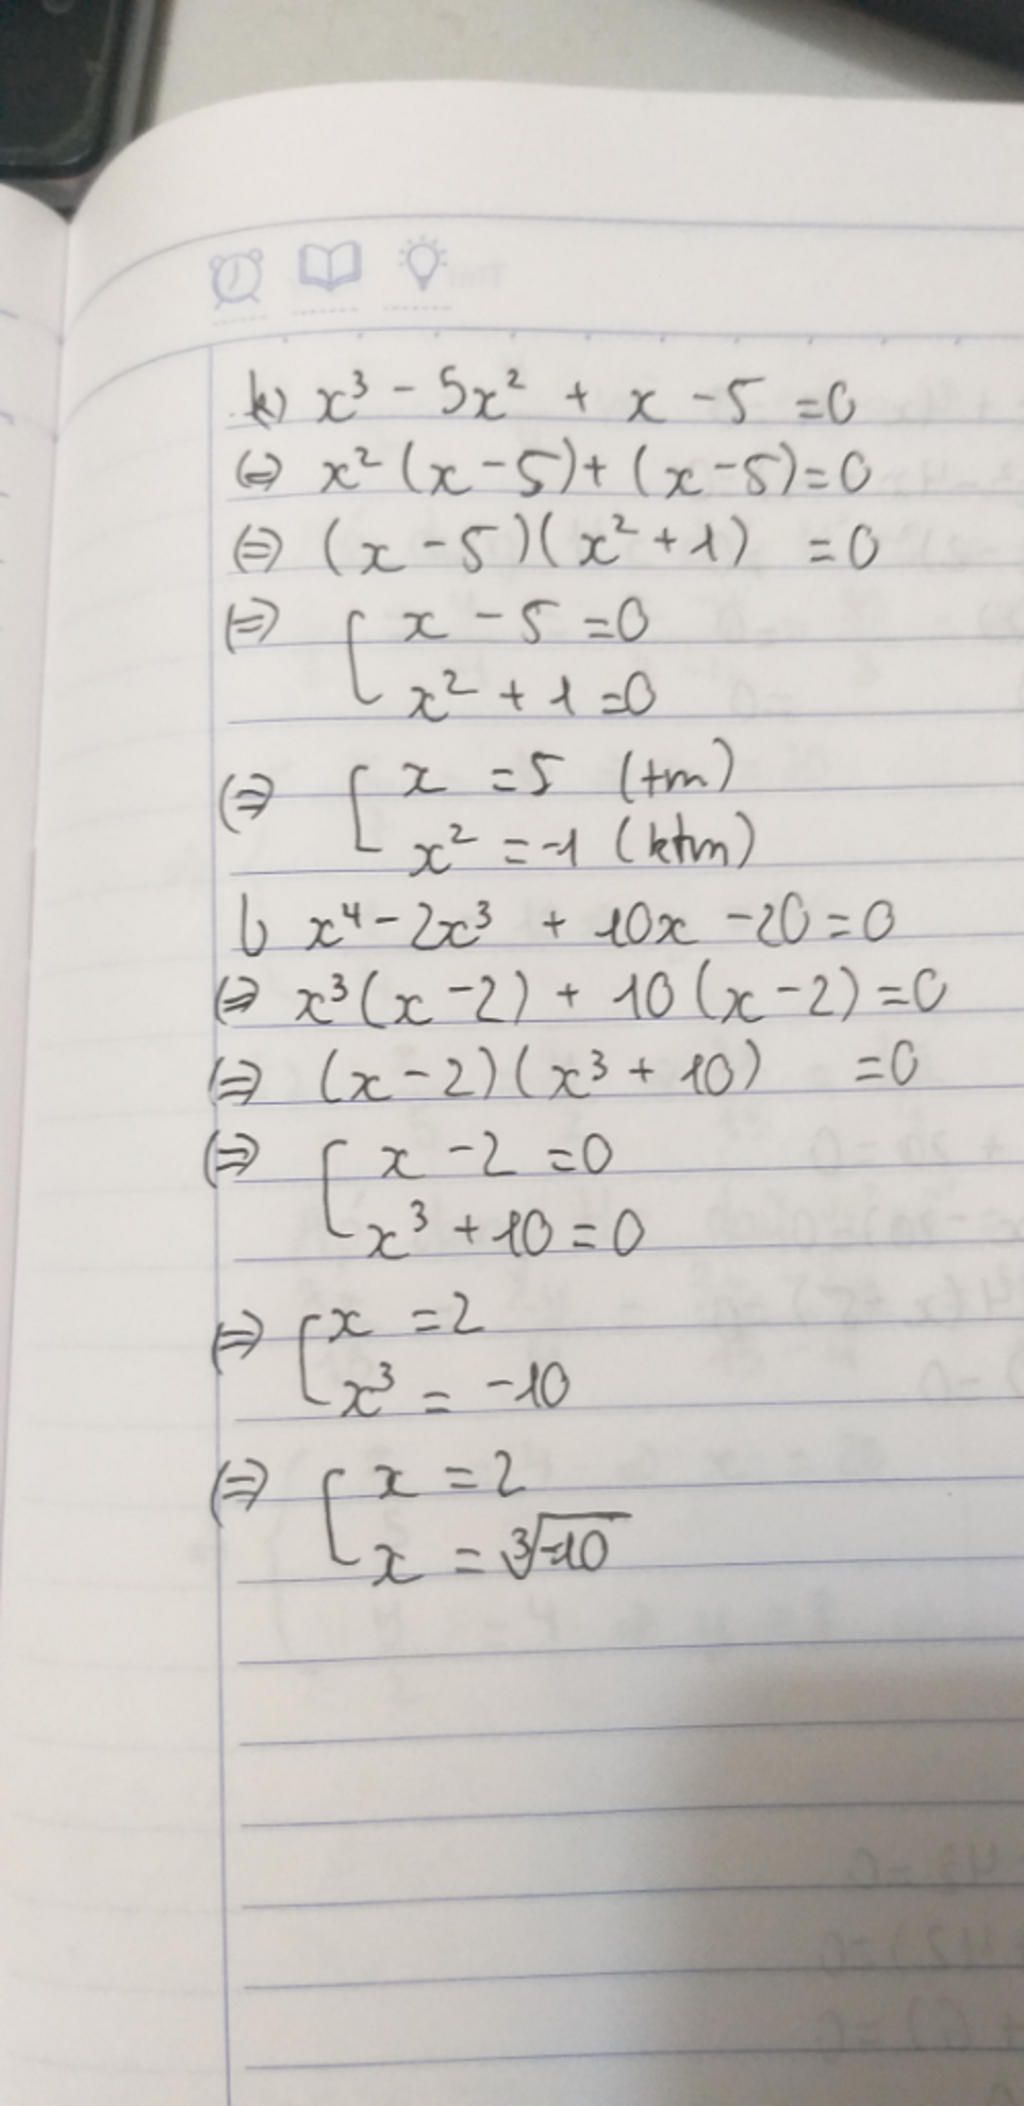 k) x³ - 5x² + x - 5 = 0
(=) x² (x - 5) + (x - 5) = 0
(=) (x - 5)(x² + 1) = 0
(=) [ x - 5 = 0
x² + 1 = 0
(=) [ x = 5 (tm)
x² = -1 (ktm)
l) x⁴ - 2x³ + 10x - 20 = 0
(=) x³(x - 2) + 10(x - 2) = 0
(=) (x - 2)(x³ + 10) = 0
(=) [ x - 2 = 0
x³ + 10 = 0
(=) [ x = 2
x³ = -10
(=) [ x = 2
x = ³√-10